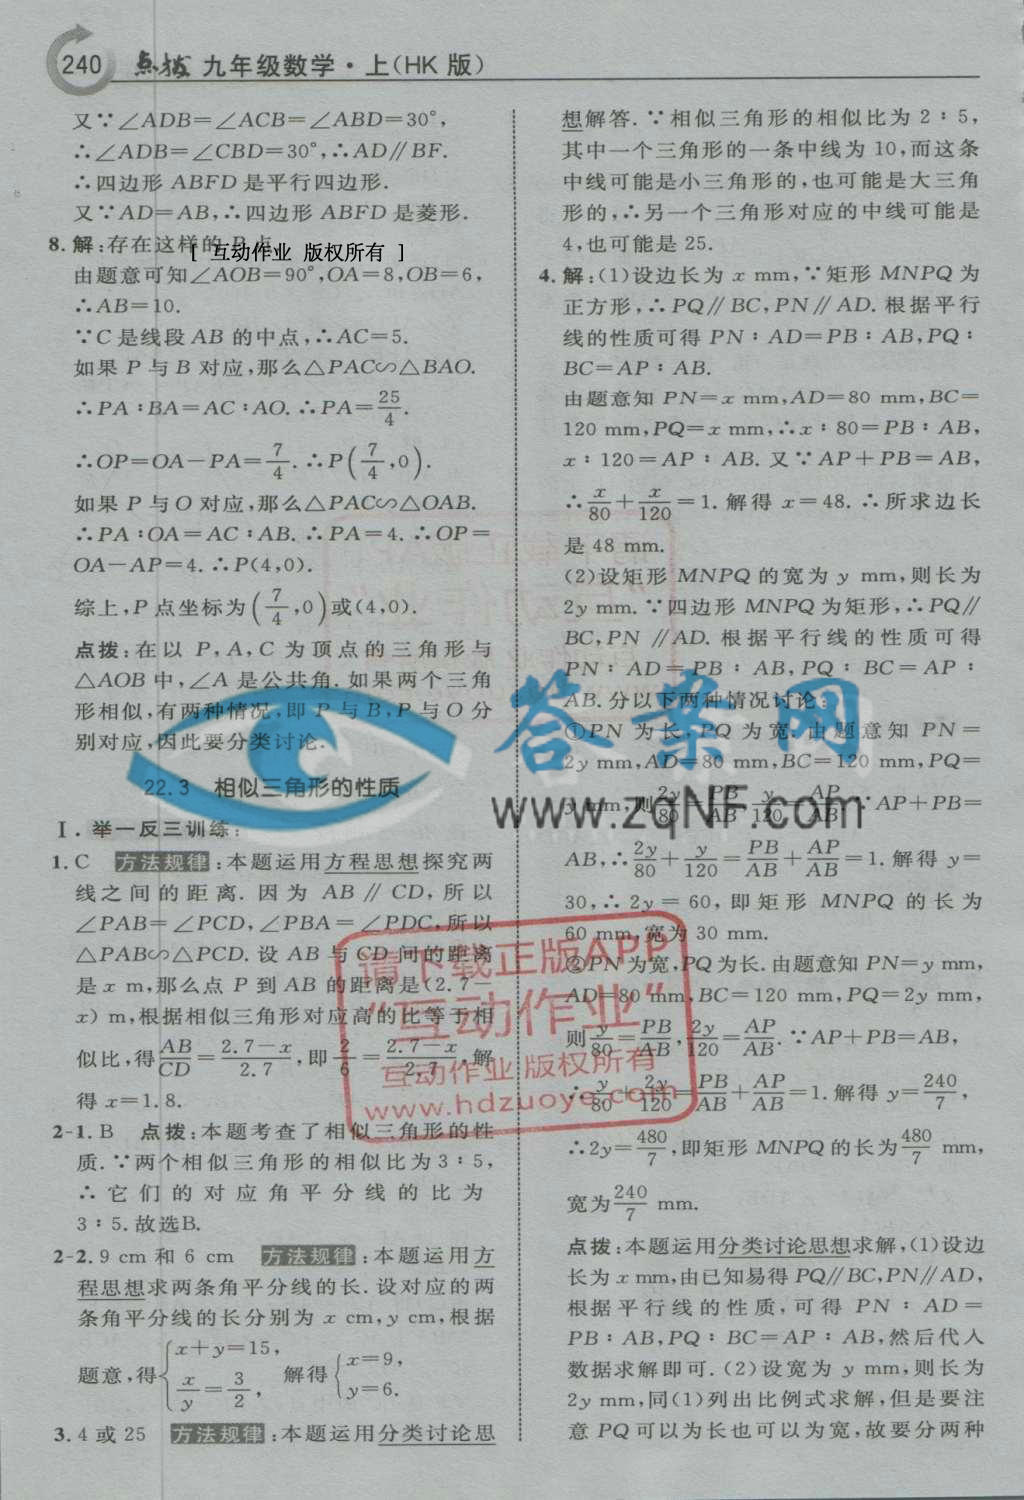 240 点拨 九年级数学·上(HK 版)
又∵∠ADB=∠ACB=∠ABD=30°,
∴∠ADB=∠CBD=30°,∴AD∥BF.
∴四边形 ABFD 是平行四边形.
又∵AD=AB,∴四边形 ABFD 是菱形.
8.解:存在这样的 P 点.
[ 互动作业 版权所有 ]
由题意可知∠AOB=90°,OA=8,OB=6,
∴AB=10.
∵C 是线段 AB 的中点,∴AC=5.
如果 P 与 B 对应,那么△PAC∽△BAO.
∴PA∶BA=AC∶AO.∴PA=25/4.
∴OP=OA−PA=7/4.∴P(7/4,0).
如果 P 与 O 对应,那么△PAC∽△OAB.
∴PA∶OA=AC∶AB.∴PA=4.∴OP=
OA−AP=4.∴P(4,0).
综上,P 点坐标为(7/4,0)或(4,0).
点拨:在以 P,A,C 为顶点的三角形与
△AOB中,∠A 是公共角.如果两个三角
形相似,有两种情况,即 P 与 B,P 与 O 分
别对应,因此要分类讨论.
22.3 相似三角形的性质
Ⅰ.举一反三训练:
1.C 方法规律:本题运用方程思想探究两
线之间的距离.因为 AB∥CD,所以
∠PAB=∠PCD,∠PBA=∠PDC,所以
△PAB∽△PCD.设 AB 与 CD 间的距离
是 x m,那么点 P 到 AB 的距离是(2.7−
x) m,根据相似三角形对应高的比等于相
似比,得AB/CD=2.7−x/2.7,即2/6=2.7−x/2.7,解
得 x=1.8.
2-1.B 点拨:本题考查了相似三角形的性
质.∵两个相似三角形的相似比为 3∶5,
∴它们的对应角平分线的比为
3∶5.故选B.
2-2.9 cm 和 6 cm 方法规律:本题运用方
程思想求两条角平分线的长.设对应的两
条角平分线的长分别为 x cm,y cm,根据
题意,得{x+y=15, x/y=3/2, 解得{x=9, y=6.
3.4 或 25 方法规律:本题运用分类讨论思
想解答.∵相似三角形的相似比为 2∶5,
其中一个三角形的一条中线为 10,而这条
中线可能是小三角形的,也可能是大三角
形的,∴另一个三角形对应的中线可能是
4,也可能是 25.
4.解:(1)设边长为 x mm,∵矩形 MNPQ 为
正方形,∴PQ∥BC,PN∥AD.根据平行
线的性质可得 PN∶AD=PB∶AB,PQ∶
BC=AP∶AB.
由题意知 PN=x mm,AD=80 mm,BC=
120 mm,PQ=x mm,∴x∶80=PB∶AB,
x∶120=AP∶AB.又∵AP+PB=AB,
∴x/80+x/120=1.解得 x=48.∴所求边长
是 48 mm.
(2)设矩形 MNPQ 的宽为 y mm,则长为
2y mm.∵四边形 MNPQ 为矩形,∴PQ∥
BC,PN∥AD.根据平行线的性质可得
PN∶AD=PB∶AB,PQ∶BC=AP∶
AB.分以下两种情况讨论:
①PN 为长,PQ 为宽.由题意知 PN=
2y mm,AD=80 mm,BC=120 mm,PQ=
y mm,则2y/80=PB/AB,y/120=AP/AB.∵AP+PB=
AB,∴2y/80+y/120=PB/AB+AP/AB=1.解得 y=
30,∴2y=60,即矩形 MNPQ 的长为
60 mm,宽为 30 mm.
②PN 为宽,PQ 为长.由题意知 PN=y mm,
AD=80 mm,BC=120 mm,PQ=2y mm,
则y/80=PB/AB,2y/120=AP/AB.∵AP+PB=AB,
∴y/80+2y/120=PB/AB+AP/AB=1.解得 y=240/7,
∴2y=480/7,即矩形 MNPQ 的长为480/7 mm,
宽为240/7 mm.
点拨:本题运用分类讨论思想求解,(1)设边
长为 x mm,由已知易得 PQ∥BC,PN∥AD,
根据平行线的性质,可得 PN∶AD=
PB∶AB,PQ∶BC=AP∶AB,然后代入
数据求解即可.(2)设宽为 y mm,则长为
2y mm,同(1)列出比例式求解,但是要注
意 PQ 可以为长也可以为宽,故要分两种
答案网
www.zqNF.com
请下载正版APP
“互动作业”
互动作业 版权所有
www.hdzuoye.com